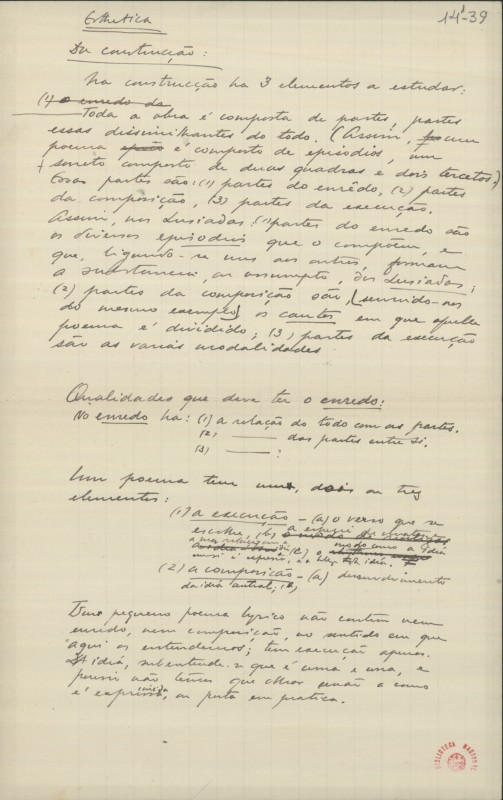 Esthetica
14¹-39
Da construcção:
Na construcção ha 3 elementos a estudar:
(1) o enredo da
Toda a obra é composta de partes, partes
essas dissimilhantes do todo. (Assim, um
poema é composto de episodios, um
soneto composto de duas quadras e dois tercetos.)
Essas partes são: (1) partes do enrêdo, (2) partes
da composição, (3) partes da execução.
Assim, nos Lusiadas: (1) partes do enredo são
os diversos episodios que o compõem, e
que, ligando-se uns aos outros, formam
a substancia, ou assumpto, dos Lusiadas;
(2) partes da composição são, (servindo-nos
do mesmo exemplo) os cantos em que aquelle
poema é dividido; (3) partes da execução
são as varias modalidades
Qualidades que deve ter o enredo:
No enredo ha: (1) a relação do todo com as partes.
(2) ——— das partes entre si.
(3) ——— :
Um poema tem um, dois ou trez
elementos:
(1) a execução – (a) o verso que se
escolhe, (b)
modo como a idéa
é expressa,
idéa.
(2) a composição – (a) desenvolvimento
da idéa central; (b)
Um pequeno poema lyrico não contém nem
enredo, nem composição, no sentido em que
aqui os entendemos; tem execução apenas.
A idéa, subentende-se que é uma e una, e
porisso não temos que olhar senão a como
é expressa, ou posta em pratica.
BIBLIOTECA NACIONAL